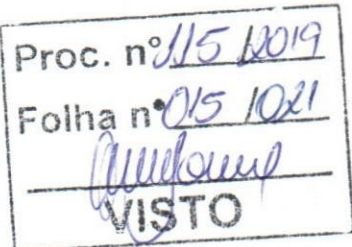 Proc. nº 115/2019
Folha nº 015/021
VISTO